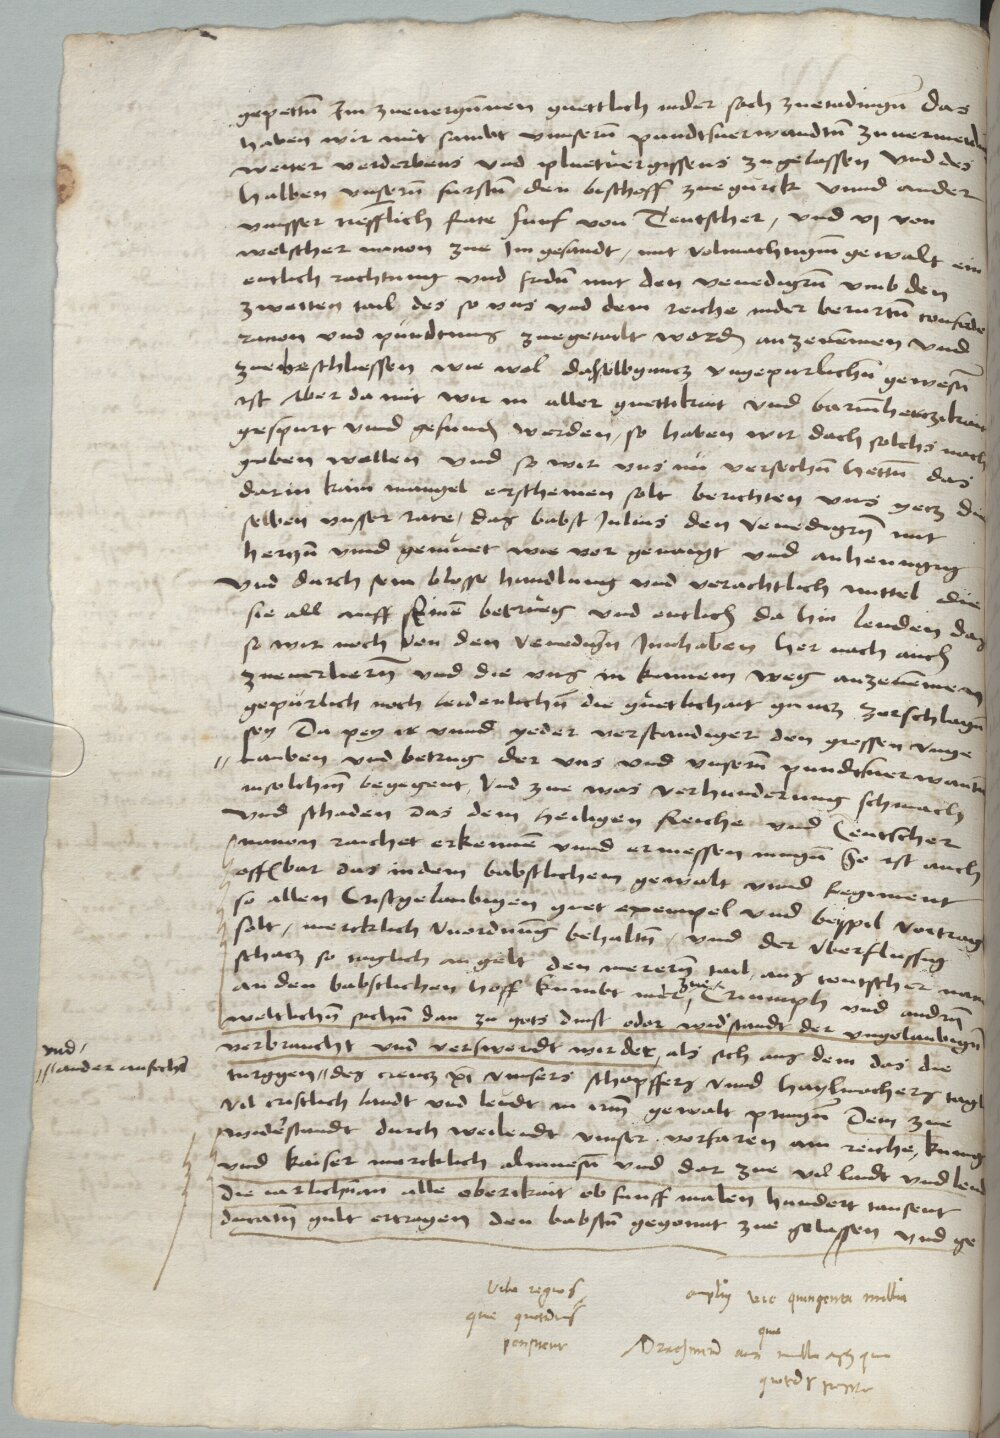 gepettn Im zuevergunnen guettlich inder sach zuetadingn das
haben wir mit sambt unnsern pundtsverwandtn zuvermeiden
weiter verderbens und pluetvergyssens zugelassen und des
halben unsern fursten den bischoff zue gurck unnd ander
unnser treffenlich Rate funf von Teutscher, und vj von
welscher nacion zue Im gesandt, mit volmachtigm gewalt ein
entlich rachtung und fridn mit den venedigrn umb den
zwaiten tail des so uns und dem reiche inder berurtn confede
racion und pundtnus zuegetailt worden anzenemen und
zuebeschliessen wie wol dasselb gantz ungepurlichn gewesn
ist Aber damit wir in aller guettikait und barmhertzikait
gespurt unnd gefunden werden, so haben wir dach solchs nach
geben wellen und so wir uns nu versechn hettn das
darin kain mangel erscheinen solt berichten uns yetz die
selben unsser rate, das babst Julius den Venedigrn mit
hertzn unnd gemuet wie vor genaigt und anhenngig
und durch sein blosse handlung und verachtlich mittel die
sie all auff seinen betrueg und entlich da hin lenden das
so wir noch von den Venedigrn Innhaben her nach auch
zueverliern und die uns in kainem weg anzenemen
gepurlich noch leidenlichn die guetlichait gantz zerschlagn
sey Da pey ir unnd yeder verstandiger den grossen unge
lauben und betrug der uns und unsern pundtsverwantn
insolchm begegent, Und zue was verhinderung schmach
und schaden das dem heiligen Reiche und Teutscher
nacion raichet erkennen unnd ermessen mugn So ist auch
offenbar das indem babstlichem gewalt unnd Regiment
so allen Cristgelaubigen guet exempel und beyspil vortragn
solt, mercklich unordnung behaltn, und der Uberflussig
schatz so taglich an gelt den merern tail, aus teutscher nacion
an den babstlichen hoff kumbt mer zue Triumph und andrn
weltlichn sachn dan zu gots dinst oder widerstandt der ungelaubign
verbraucht und verswendt wirdet, als sich aus dem das die
und
ander ansechn
turggen des creutz xi unnsers schopffers unnd haylmachers tagl
vil cristlich landt und leudt in irm gewalt pringn Dem zue
widerstandt durch weilendt unnser vorfaren am reiche, kunig
und kaiser mercklich almuesn und dar zue vil landt und leudt
die iarlichn an alle oberckait ob funff malen hundert tausent
ducatn gult ertragen den babstn gegonnt zue gelassen und ge
quingenta millia
que